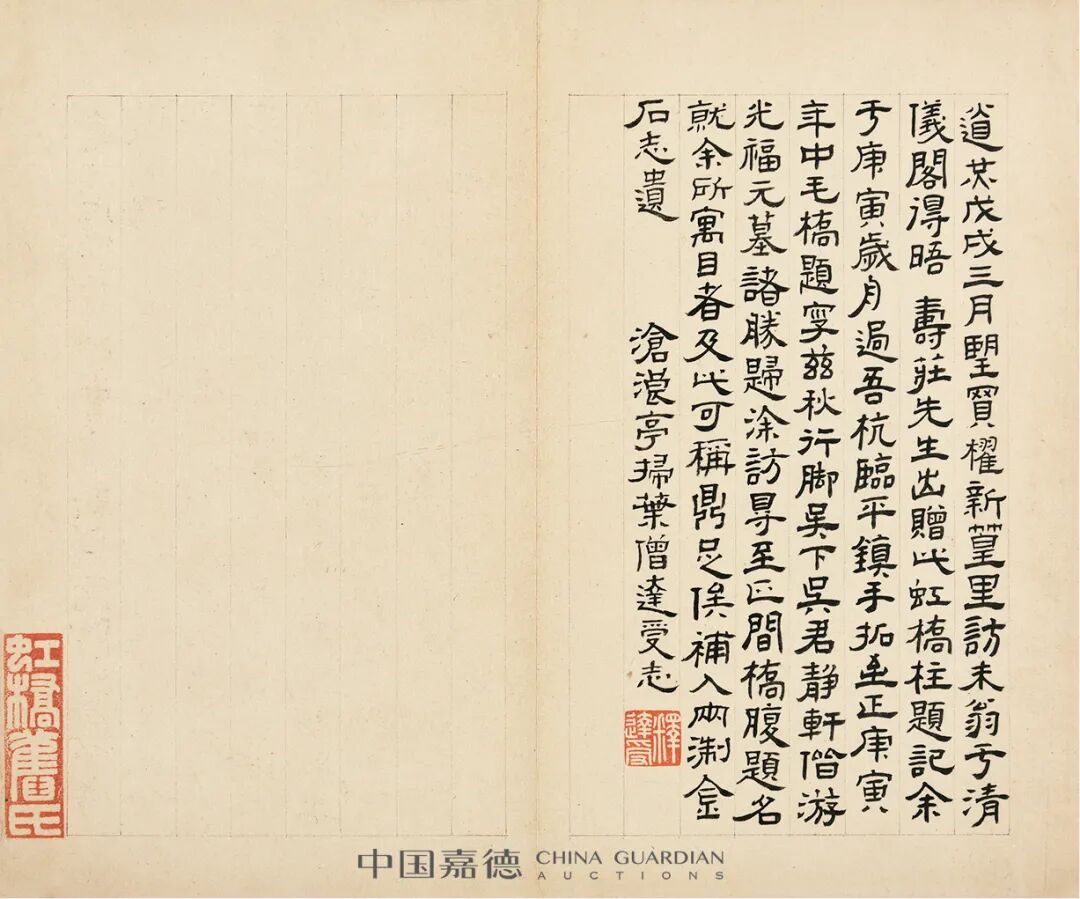 道光戊戌三月望買櫂新篁里訪未翁于清
儀閣得晤 壽莊先生出贈此虹橋柱題記余
于庚寅歲月過吾杭臨平鎮手拓至正庚寅
年中毛橋題字茲秋行脚吳下吳君静軒偕游
光福元墓諸勝歸涂訪尋至正間橋腹題名
就余所寓目者及此可稱鼎足俟補入兩浙金
石志遺
滄浪亭掃葉僧達受志
釋達受
虹橋舊氏
中国嘉德 CHINA GUARDIAN
AUCTIONS